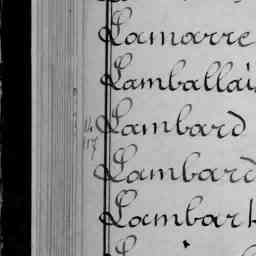 Lamarre
Lamballais
Lambard
Lambard
Lambark